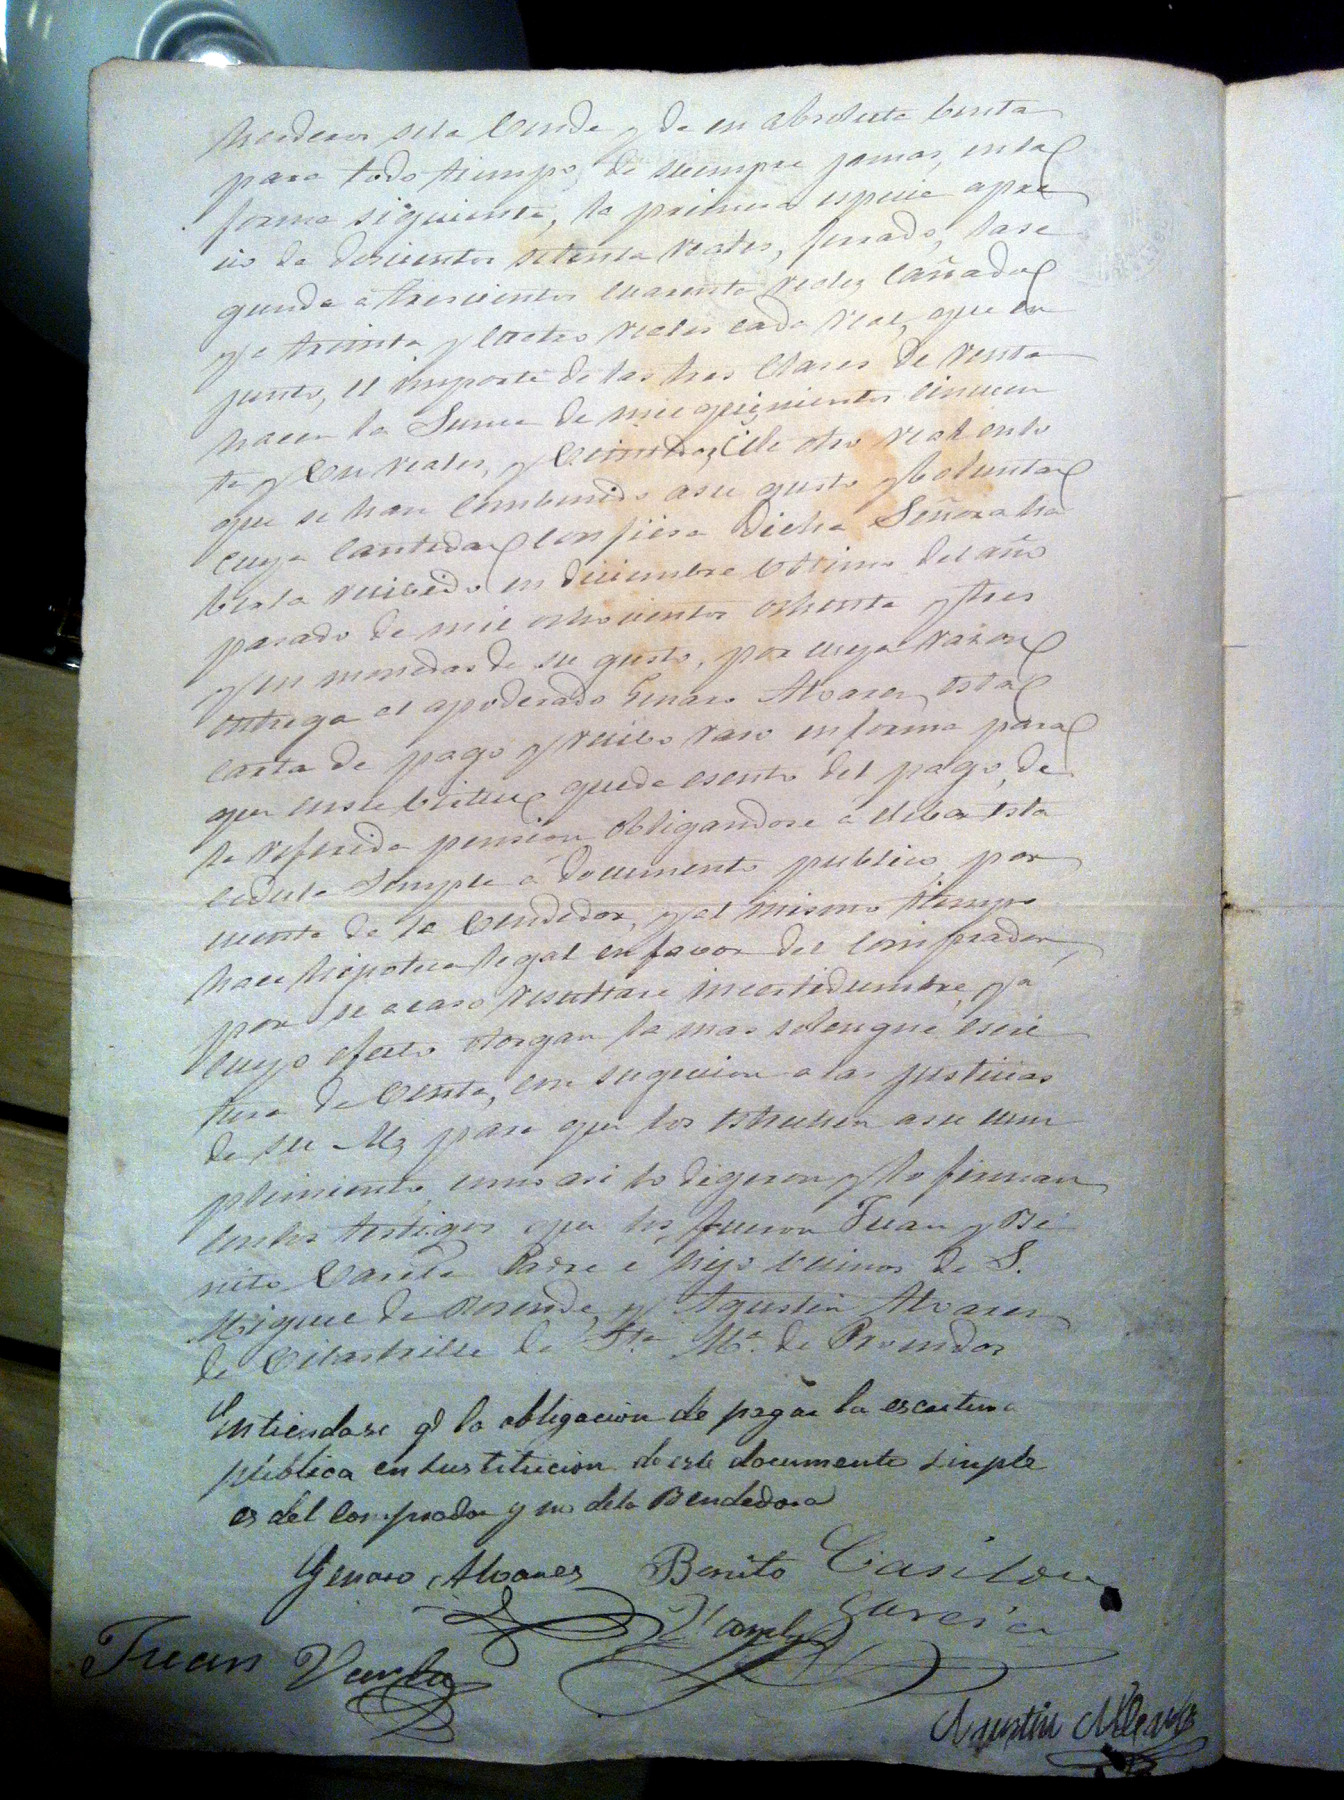 herderos sela Vende y da en absoluta benta
para todo tiempo, de siempre jamas, enla
forma siguiente, la primera especie apre
cio de doscientos setenta reales, ferrado, lase
gunda a trescientos cuarenta reales cañado
y a treinta y cuatro reales cada real, que en
junto, el importe de las tres Clases de renta
hacen la Suma de mil quinientos cincuen
ta y Un reales, y de otro real enlo
que se han Combenido asu gusto y boluntad
cuya Cantidad confiesa dicha Señora ha
berla recivido en diciembre Ultimo del año
pasado de mil ochocientos ochenta y tres
y en monedas de su gusto, por cuya razon
entrega el apoderado Genaro Alvarez esta
carta de pago y recibo raso en forma para
que ensu birtud quede esento del pago, de
la referida pension obligandose a elebar esta
cedula Simple a documento publico, por
cuenta de la Vendedora, y al mismo tiempo
hace hipoteca legal en favor del Comprador,
por se acaso resultare incertidumbre, ya
cuyo efecto otorgan la mas solengne escri
tura de Venta, con sugecion a las justicias
de su M, para que los estrechen asu cum
plimiento, como asi lo digeron y lo firman
conlos testigos que lo fueron Juan y Be
nito Varela Padre e hijo Vecinos de S.
Miguel de Rosende, y Agustin Alvarez
de de Sta. Ma. de Proendos
Entiendase q la obligacion de pagar la escritura
publica en sustitucion de este documento simple
es del comprador y no dela Bendedora
Genaro Alvares Benito Casilou
Garcia
Juan Varela
Agustin Albarez